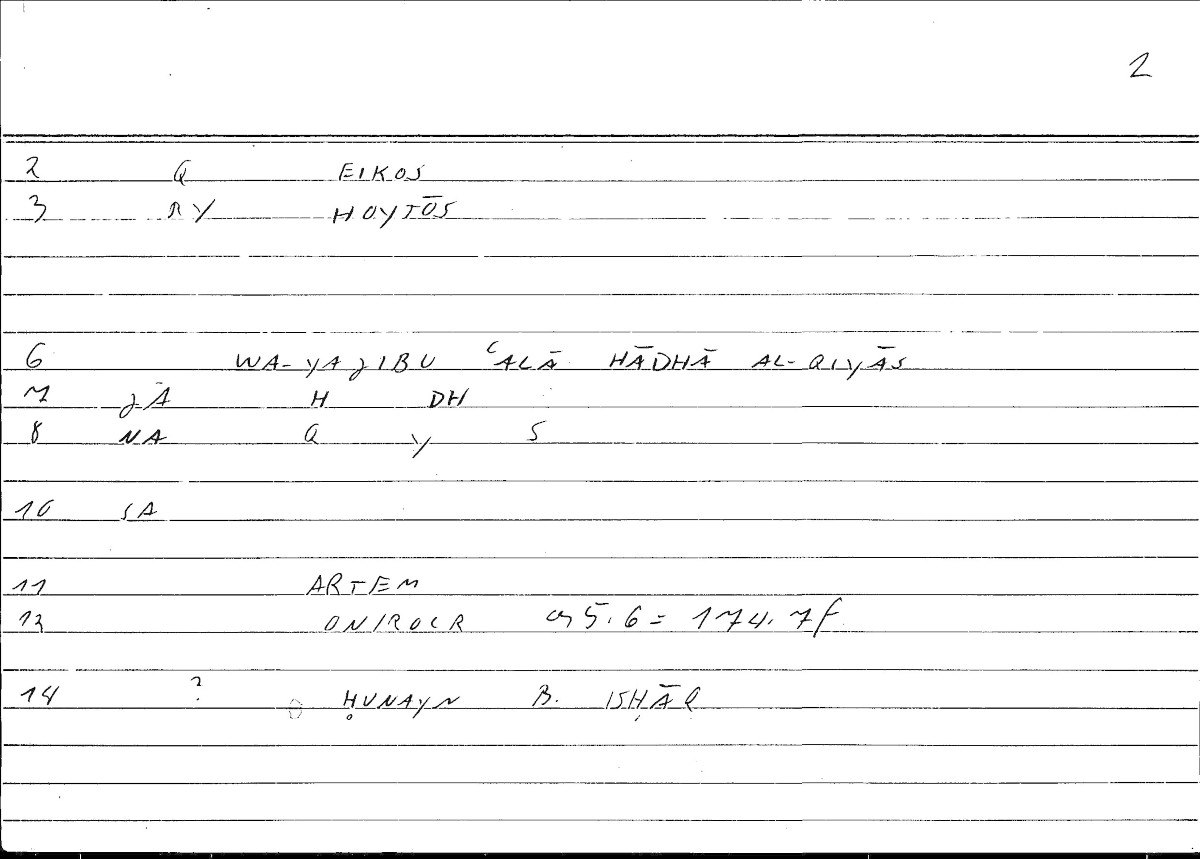 2
2 Q EIKOS
3 RY HOYTŌS
6 WA-YAJIBU ʿALĀ HĀDHĀ AL-QIYĀS
7 JĀ H DH
8 NA Q Y S
10 SA
11 ARTEM
12 ONIROCR 5.6 = 174.7f
14 ? ḤUNAYN B. ISḤĀQ